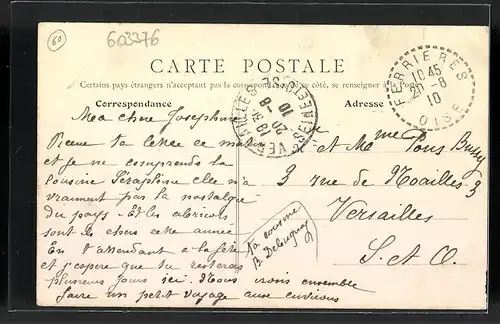 60
603376
CARTE POSTALE
Certains pays étrangers n'acceptant pas la correspondance de ce côté, se renseigner à la Poste
Correspondance
Adresse
FERRIERES
10 45
20 - 8
10
OISE
VERSAILLES
19 3
20 - 8
10
SEINE-ET-OISE
Ma chère Joséphine
Reçu ta lettre ce matin
et je ne comprends la
cousine Séraphine elle n'a
vraiment pas la nostalgie
du pays - Et les abricots
sont si chers cette année
En t'attendant à la fête
et j'espère que tu resteras
plusieurs jours ici. Nous irons ensemble
faire un petit voyage aux environs
ta cousine
B.
et Mme Pons
3 rue de Noailles 3
Versailles
S. et O.